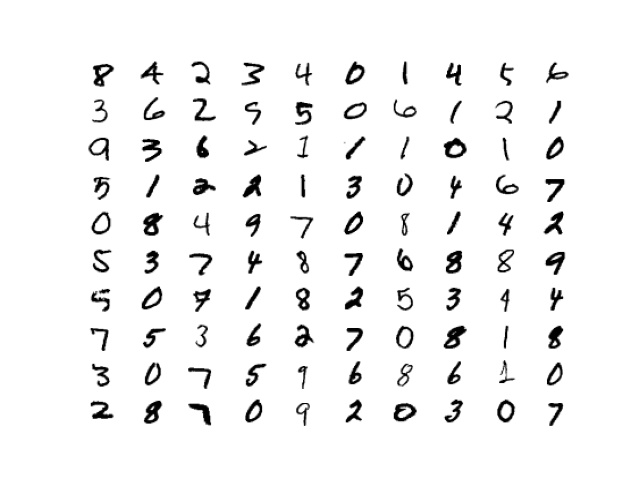 8 4 2 3 4 0 1 4 5 6
3 6 2 9 5 0 6 1 2 1
9 3 6 2 1 1 1 0 1 0
5 1 2 2 1 3 0 4 6 7
0 8 4 9 7 0 8 1 4 2
5 3 7 4 8 7 6 8 8 9
5 0 7 1 8 2 5 3 9 4
7 5 3 6 2 7 0 8 1 8
3 0 7 5 9 6 8 6 1 0
2 8 7 0 9 2 0 3 0 7